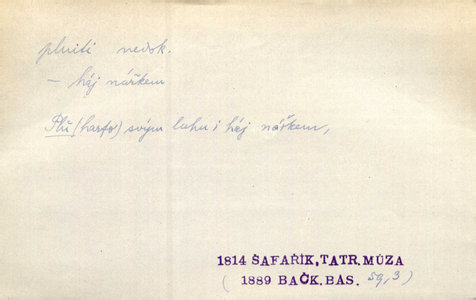 pluiti nedok.
– háj nářkem
Plú (harfo) svým lahu i háj nářkem,
1814 ŠAFAŘÍK, TATR. MÚZA
( 1889 BAČK. BÁS. 59, 3)